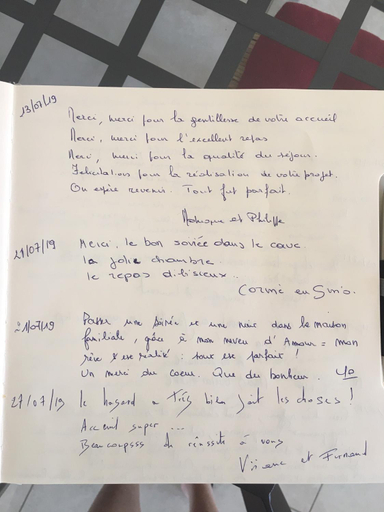 13/07/19
Merci, merci pour la gentillesse de votre accueil
Merci, merci pour l'excellent repas
Merci, merci pour la qualité du séjour.
Félicitations pour la réalisation de votre projet.
On espère revenir. Tout fut parfait.
et Philippe
21/07/19
Merci, le bon soirée dans le cave
la jolie chambre
le repos délisieux
21/07/19
Passer une soirée et une nuit dans la maison
familiale, grâce à mon neveu d'Amour = mon
rêve est réalité : tout est parfait !
Un merci du coeur. Que du bonheur.
27/07/19 le hasard a très bien fait les choses !
Accueil super ...
Beaucoupsss de réussite à vous
et Fernand